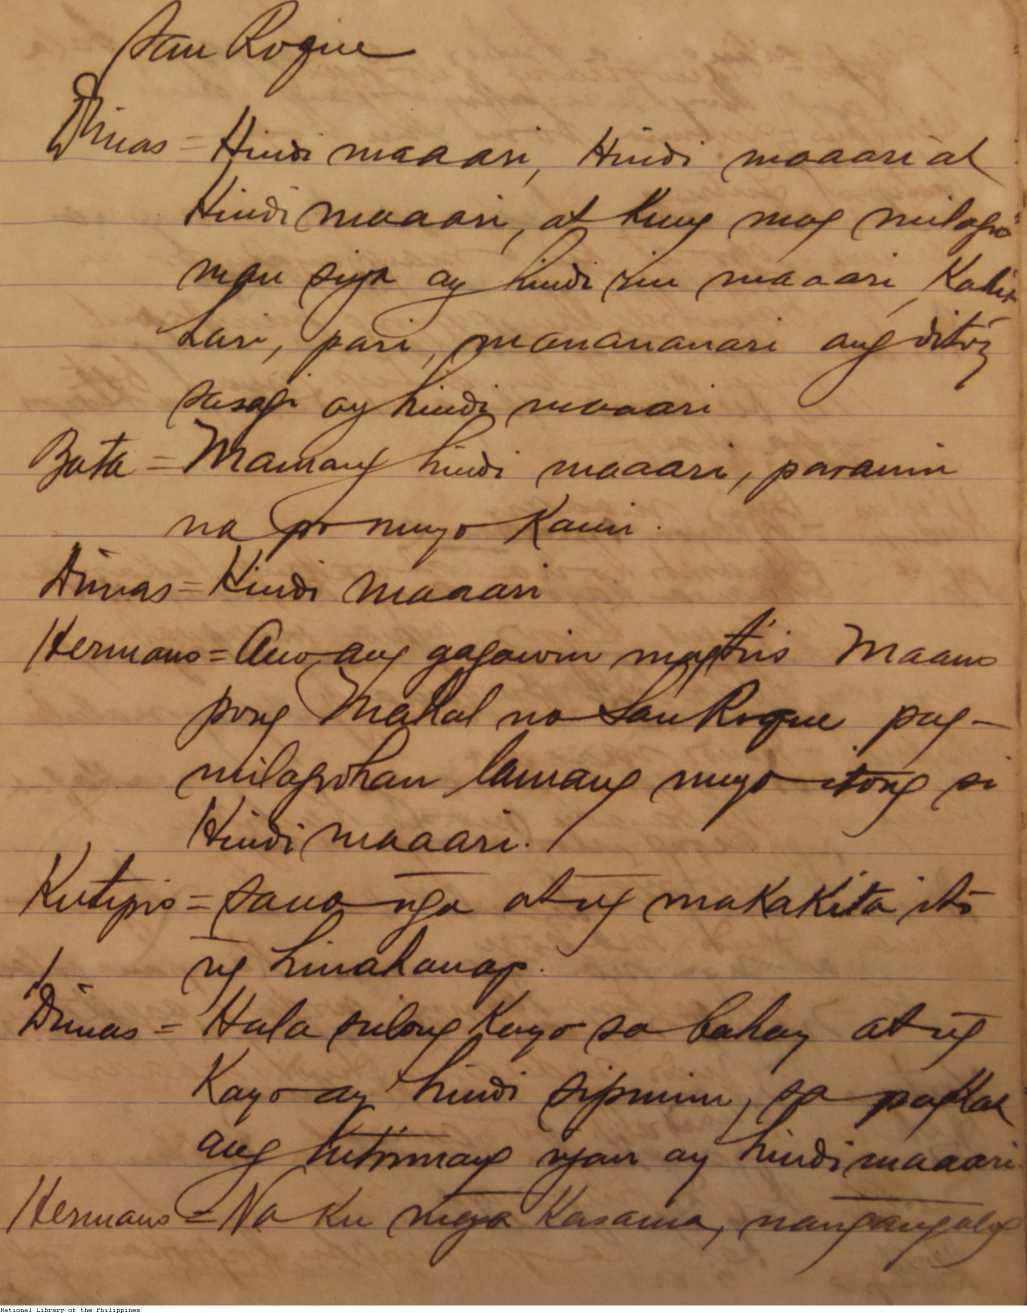 San Roque
Dimas = Hindi maaari, Hindi maaari at
Hindi maaari, at kung mag milagro
man siya ay hindi rin maaari, Kahit
hari, pari, manananari ang ditoy
sasagi ay hindi maaari
Bata = Mamang hindi maaari, paraanin
na po ninyo Kami.
Dimas = Hindi maaari
Hermano = Ano, ang gagawin magtiis Maano
pong Mahal na San Roque pag-
milagrohan lamang ninyo itong si
Hindi maaari.
Kutipio = Sana nga at ng makakita ito
ng hinahanap.
Dimas = Hala silong Kayo sa bahay at ng
Kayo ay hindi sipunin, sa pagkat
ang ay hindi maaari
Hermano = Na Ku mga Kasama, nangangalog
National Library of the Philippines